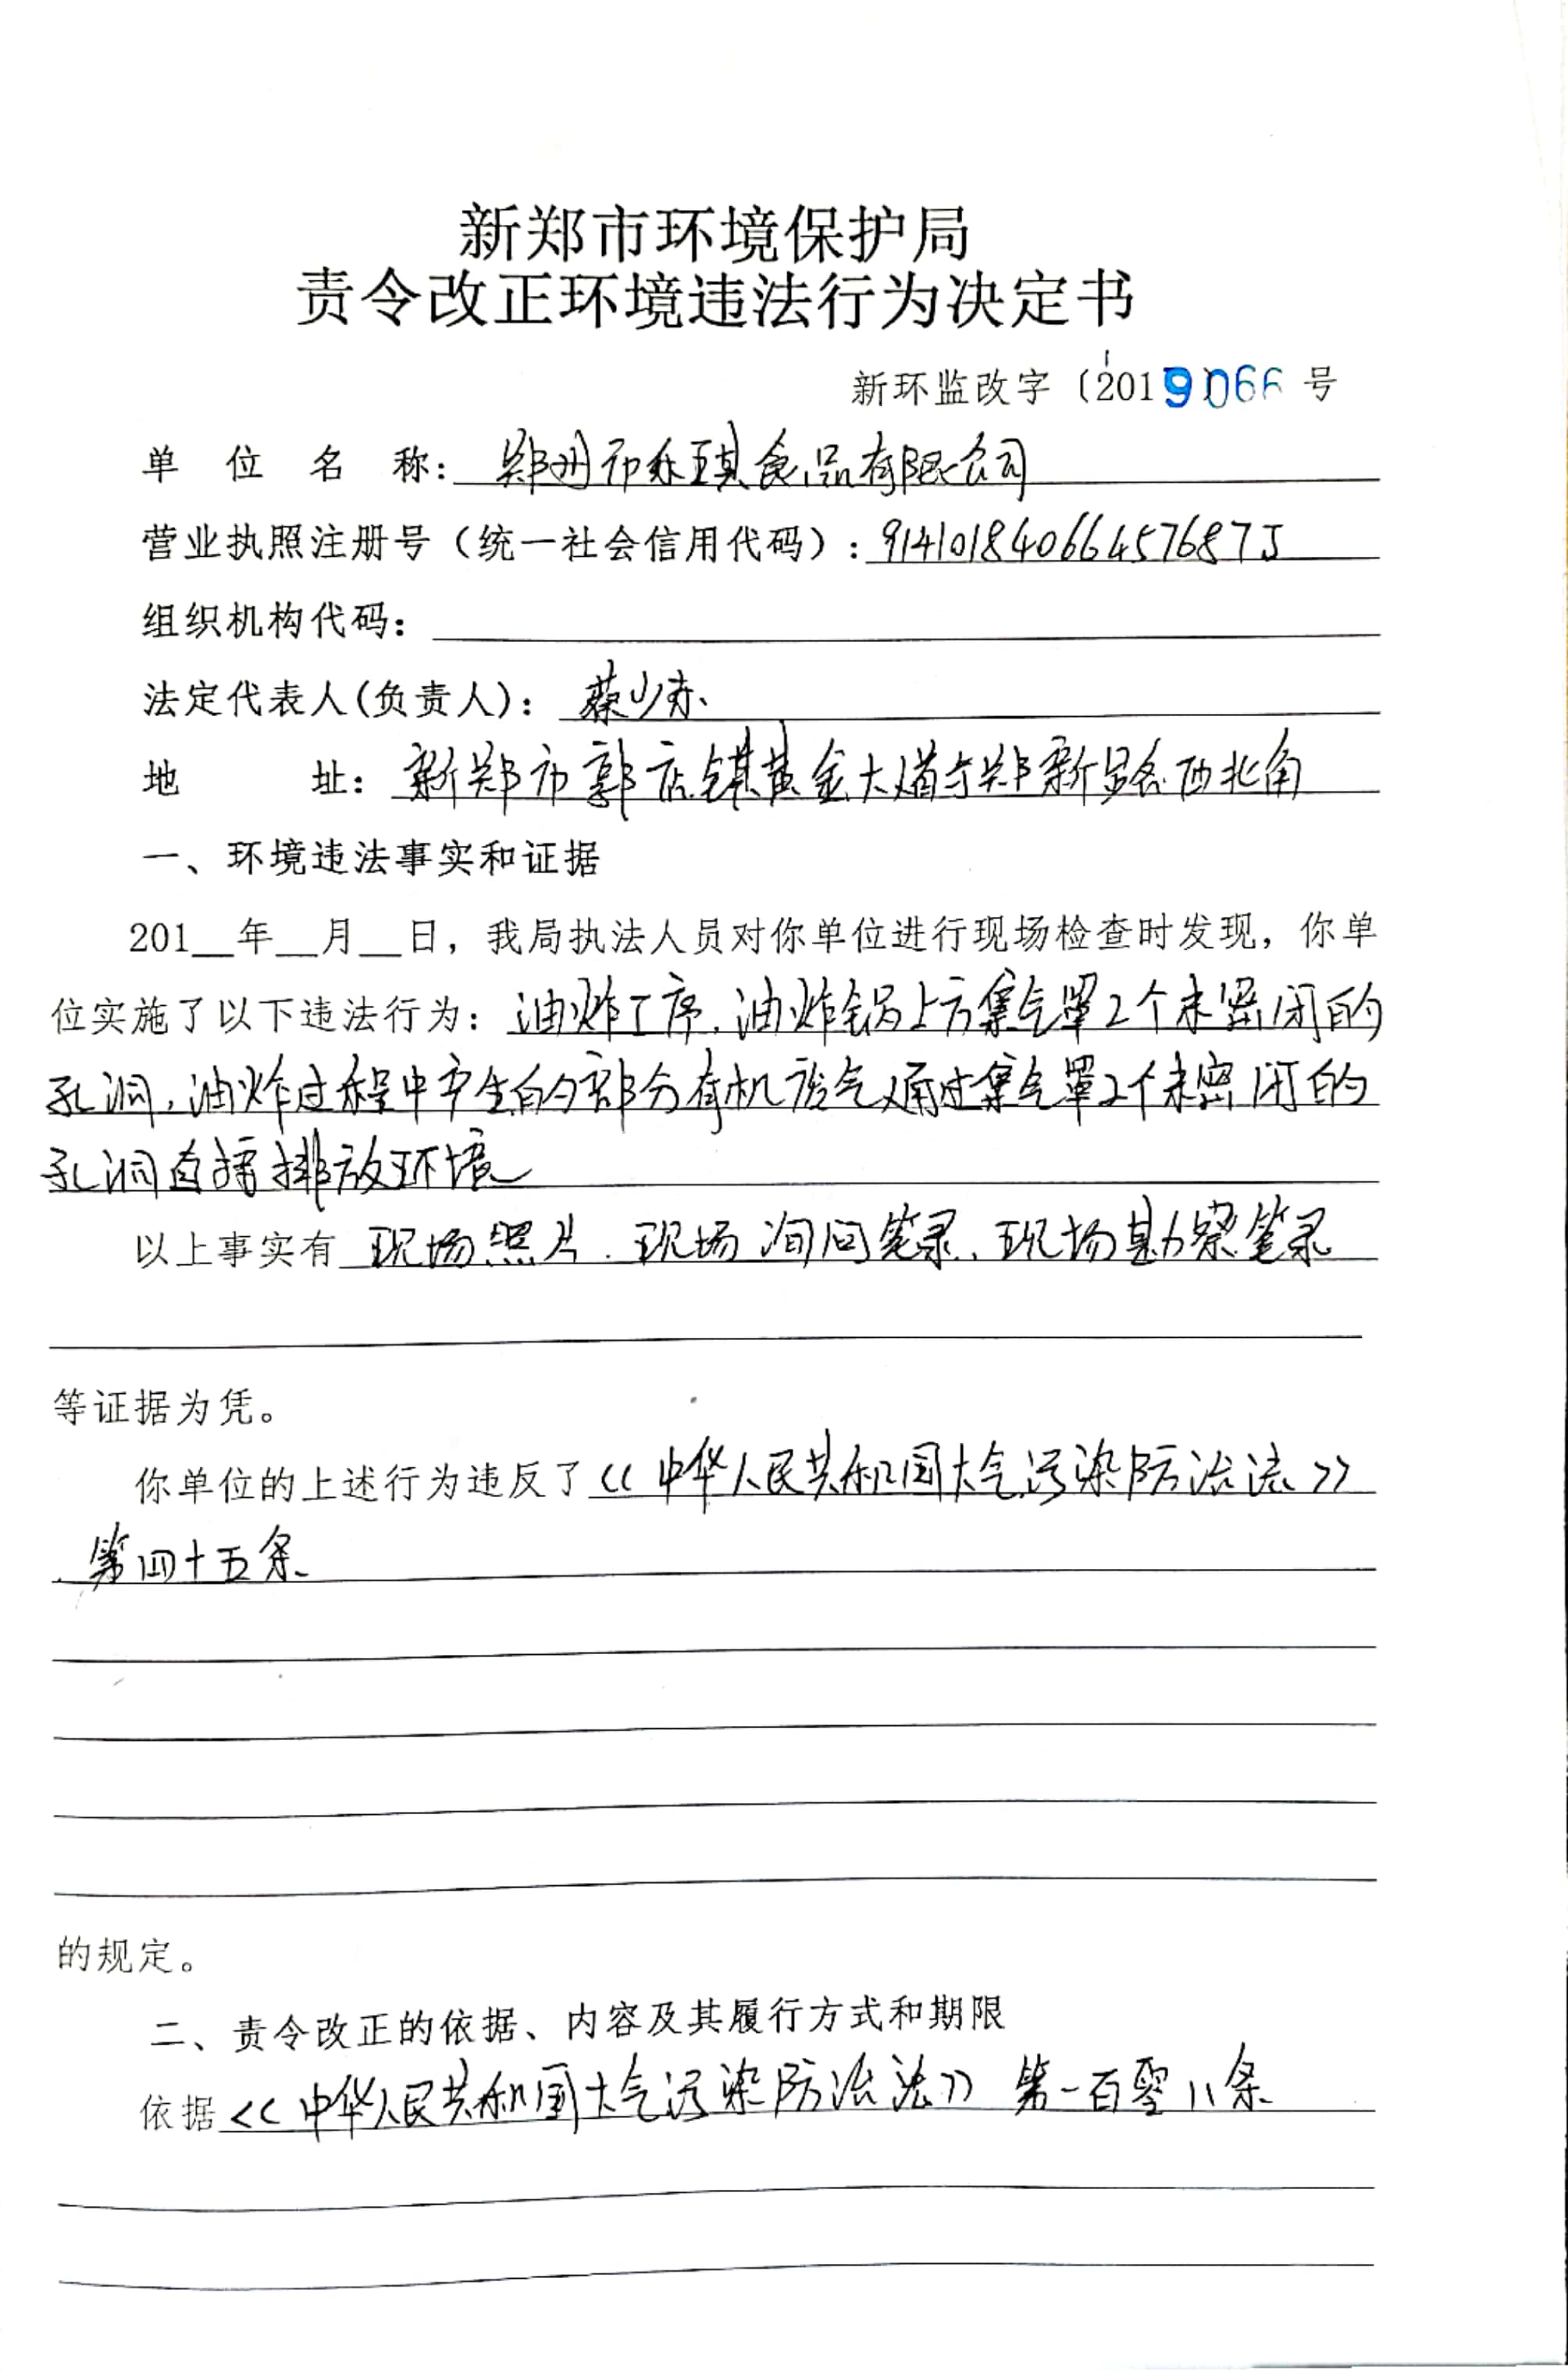 新郑市环境保护局
责令改正环境违法行为决定书
新环监改字〔2019066号
单位名称：郑州市亦琪食品有限公司
营业执照注册号（统一社会信用代码）：91410184066457687J
组织机构代码：
法定代表人(负责人)：蔡少亦
地址：新郑市郭店镇黄金大道与郑新路西北角
一、环境违法事实和证据
201__年__月__日，我局执法人员对你单位进行现场检查时发现，你单
位实施了以下违法行为：油炸工序，油炸锅上方集气罩2个未密闭的
孔洞，油炸过程中产生的部分有机废气通过集气罩2个未密闭的
孔洞直接排放环境
以上事实有 现场照片、现场询问笔录、现场勘察笔录
等证据为凭。
你单位的上述行为违反了《中华人民共和国大气污染防治法》
第四十五条
的规定。
二、责令改正的依据、内容及其履行方式和期限
依据《中华人民共和国大气污染防治法》第一百零八条